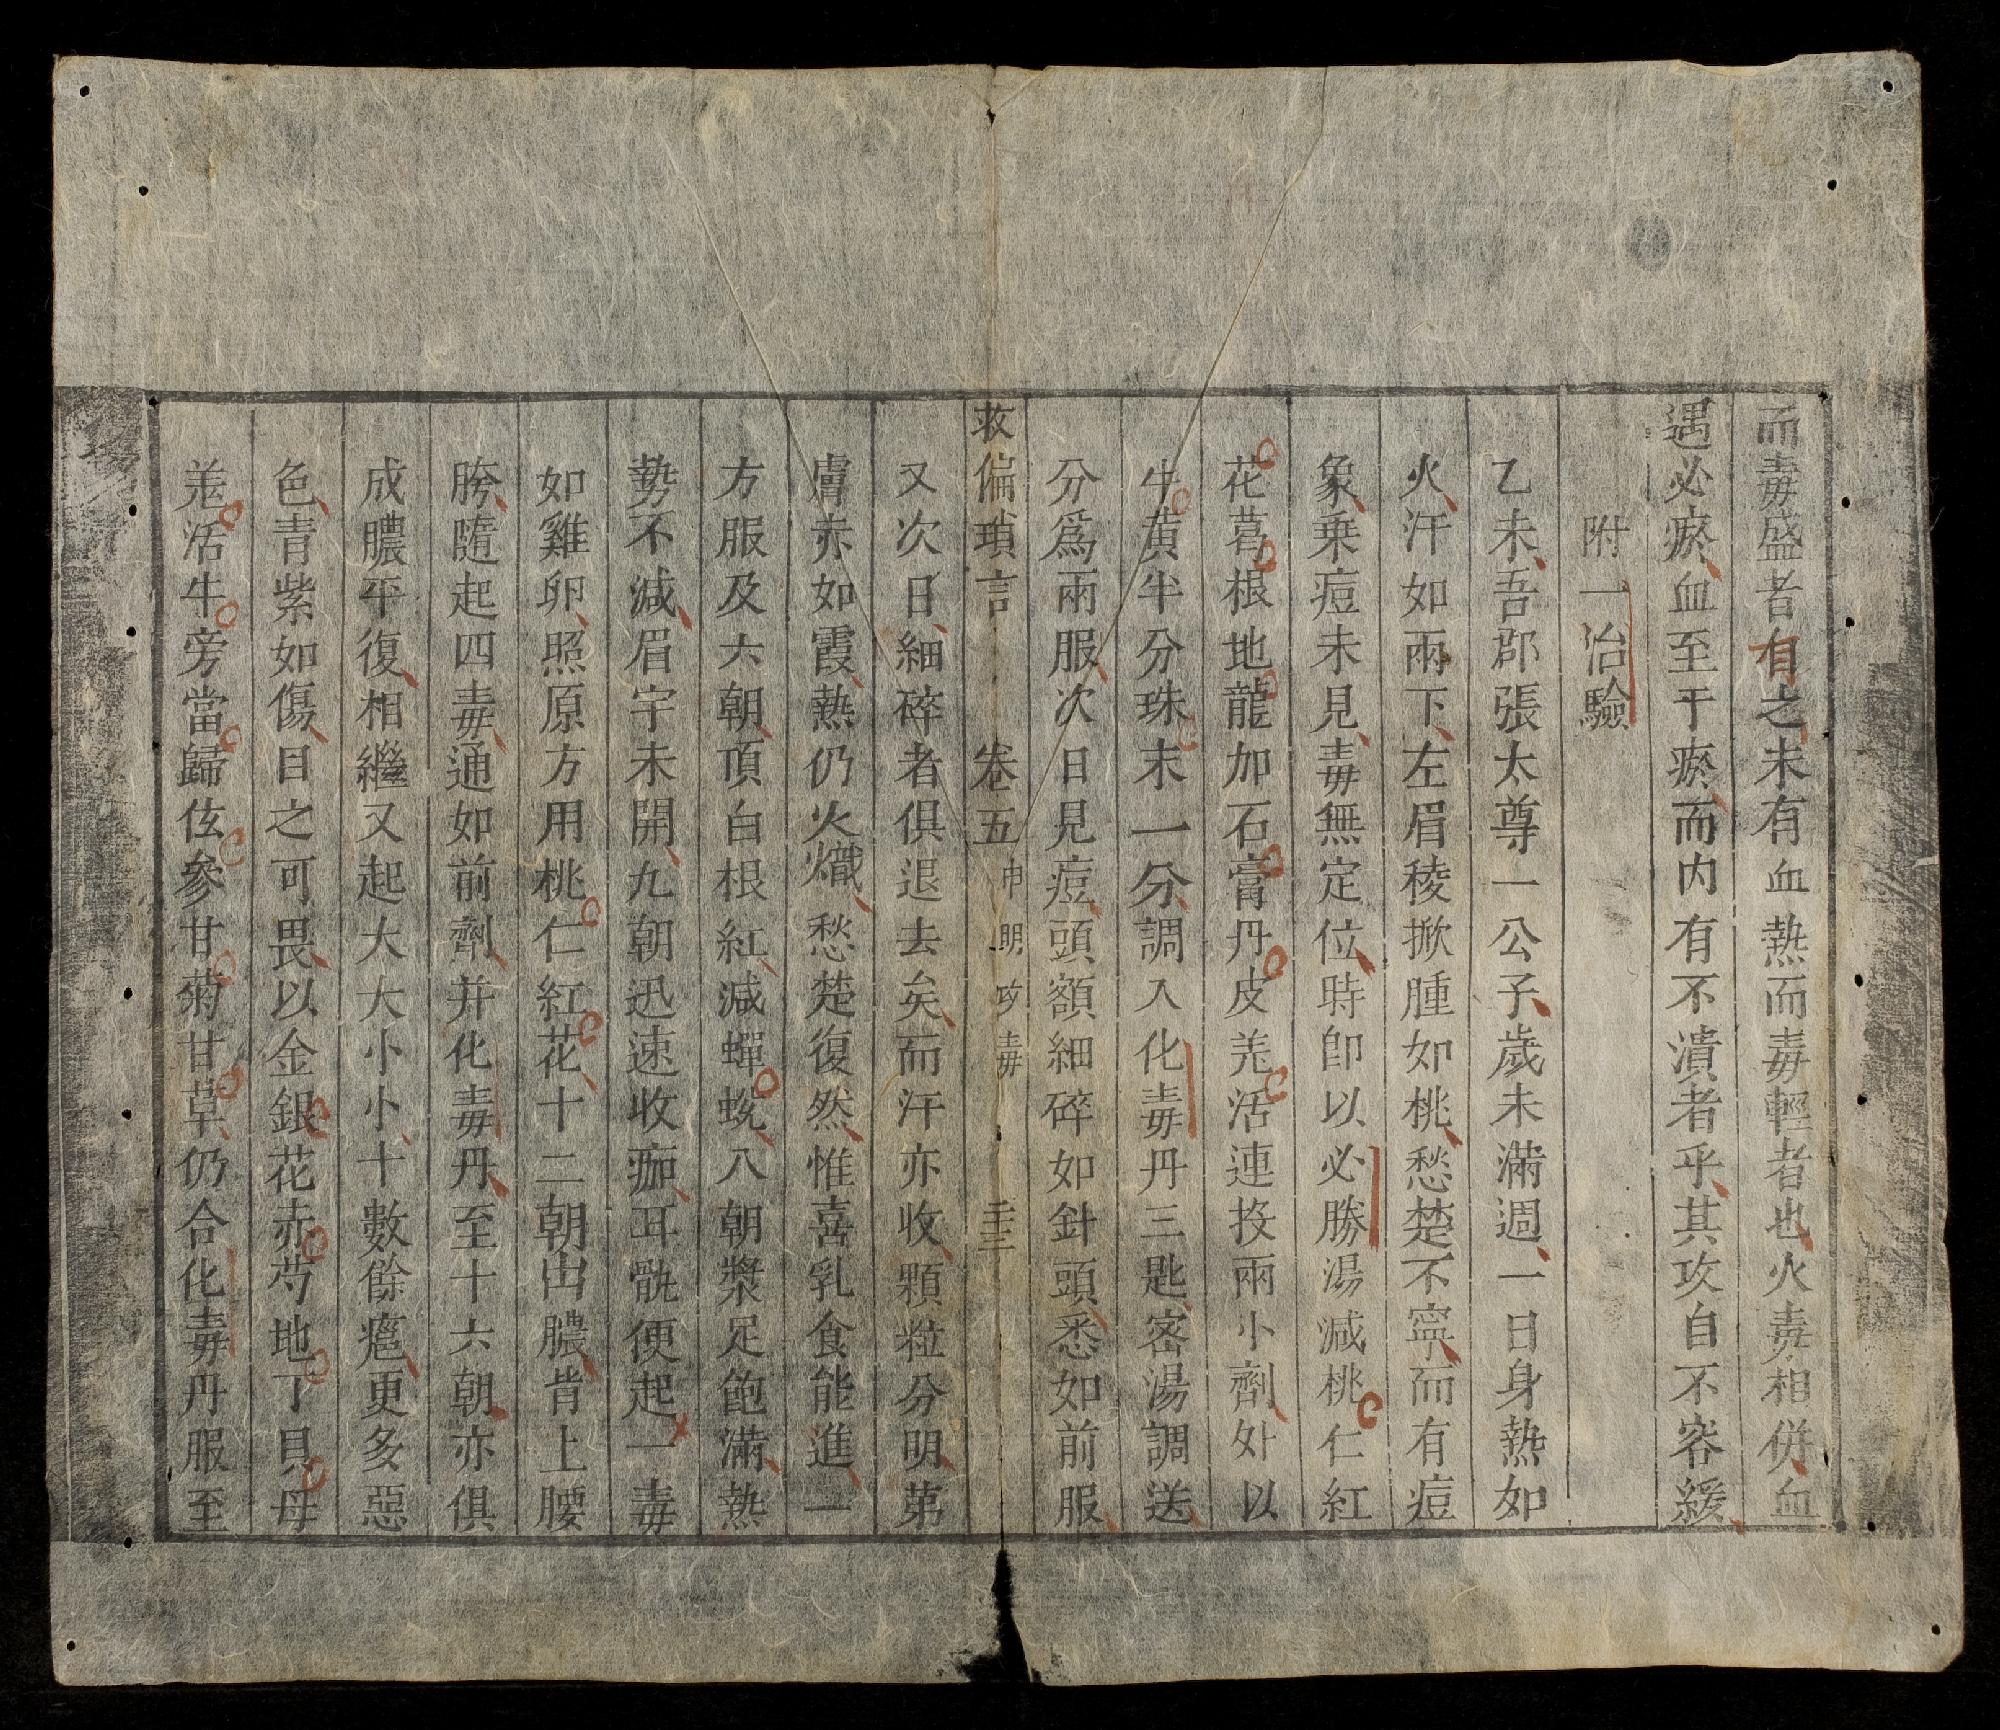 而毒盛者有之未有血熱而毒輕者也火毒相併血
遇必瘀血至于瘀而内有不潰者乎其攻自不容緩
附一治驗
乙未吾郡張太尊一公子歲未滿週一日身熱如
火汗如雨下左眉稜掀腫如桃愁楚不寧而有痘
象乗痘未見毒無定位時卽以必勝湯減桃仁紅
花葛根地龍加石膏丹皮羗活連投兩小劑外以
牛黃半分珠末一分調入化毒丹三匙蜜湯調送
分爲兩服次日見痘頭額細碎如針頭悉如前服
救偏瑣言 卷五 申明攻毒 二十三
又次日細碎者俱退去矣而汗亦收顆粒分明第
膚赤如霞熱仍火熾愁楚復然惟喜乳食能進一
方服及六朝頂白根紅減蟬蛻八朝漿足飽滿熱
勢不減眉宇未開九朝迅速收痂耳骩便起一毒
如雞卵照原方用桃仁紅花十二朝出膿肯上腰
胯隨起四毒通如前劑并化毒丹至十六朝亦俱
成膿平復相繼又起大大小小十數餘瘡更多惡
色青紫如傷目之可畏以金銀花赤芍地丁貝母
羗活牛旁當歸伭參甘菊甘草仍合化毒丹服至